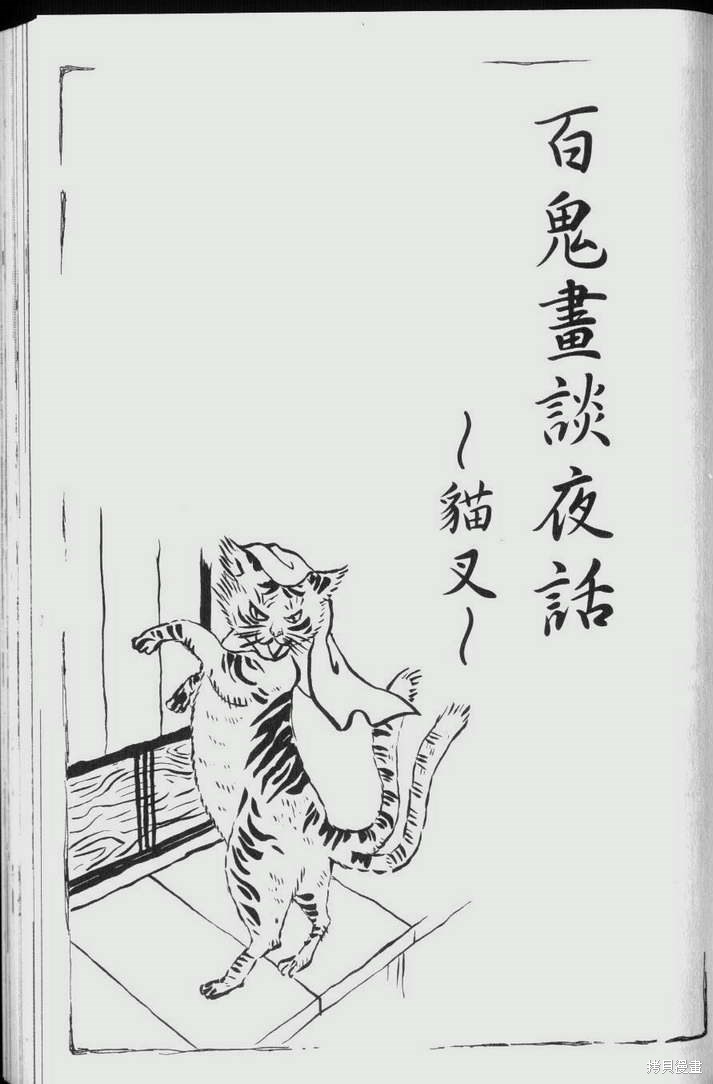 百鬼畫談夜話
~貓叉~
拷貝漫畫